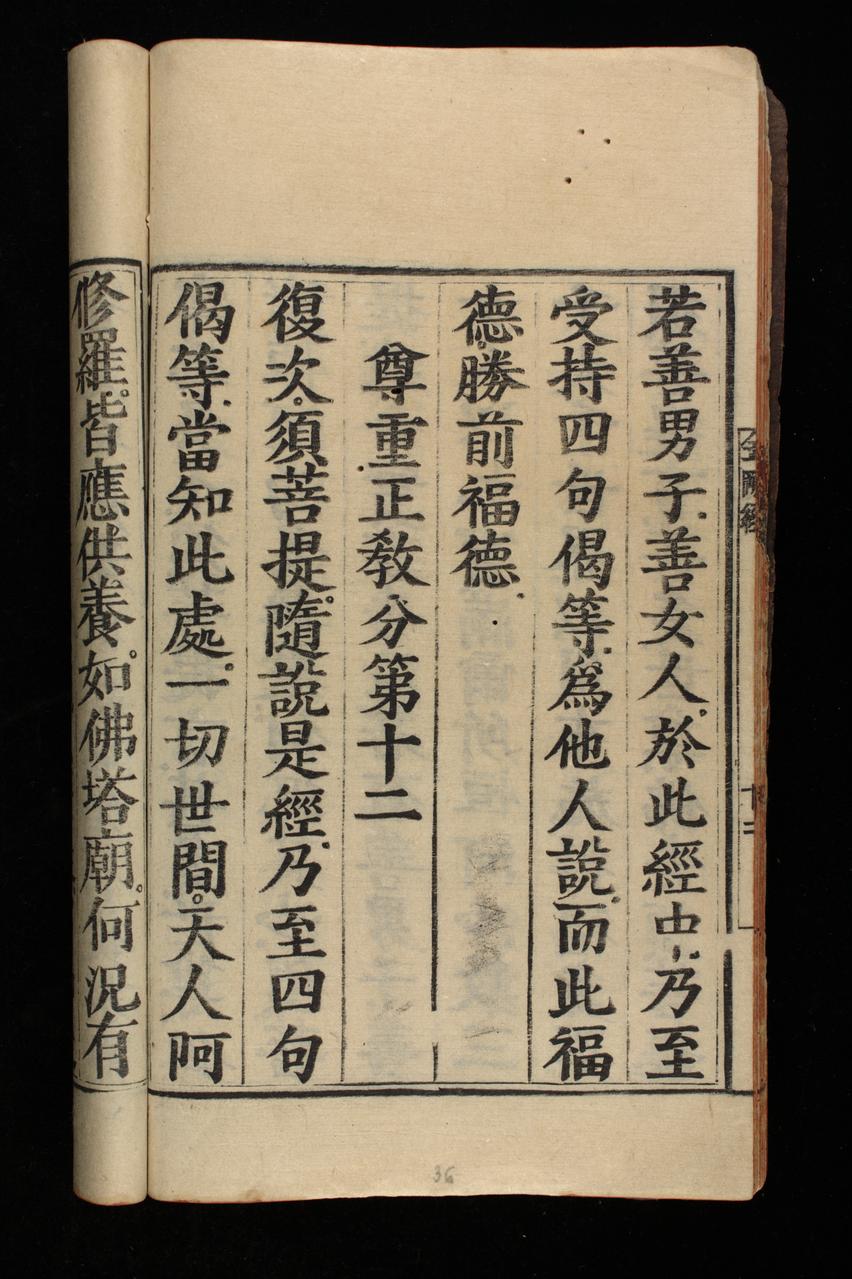 金剛經
十二
若善男子善女人於此經中乃至
受持四句偈等為他人說而此福
德勝前福德
尊重正教分第十二
復次須菩提隨說是經乃至四句
偈等當知此處一切世間天人阿
修羅皆應供養如佛塔廟何況有
36